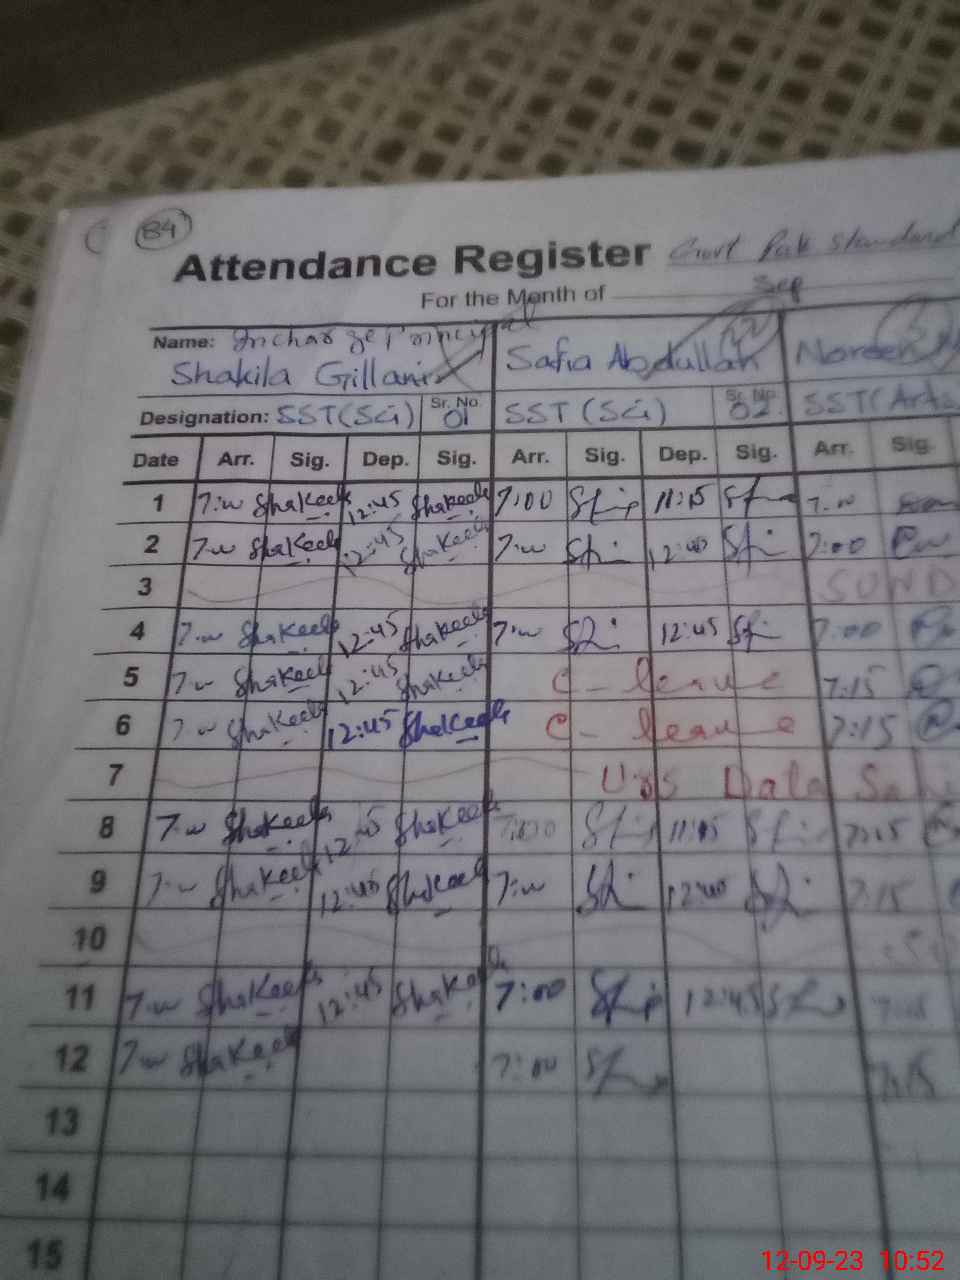 84
Attendance Register Govt Pak Standard
For the Month of Sep
Name: Incharge Principal
Shakila Gillani Safia Abdullah Noreen
Designation: SST (Sci) Sr. No. 01 SST (Sci) Sr. No. 02 SST (Arts
Date Arr. Sig. Dep. Sig. Arr. Sig. Dep. Sig. Arr. Sig.
1 7:00 Shakeela 12:45 Shakeela 7:00 11:15 7:00
2 7:00 Shakeela 12:45 Shakeela 7:00 12:45 7:00
3 SUND
4 7:00 Shakeela 12:45 Shakeela 7:00 12:45 7:00
5 7:00 Shakeela 12:45 Shakeela C-leave 7:15
6 7:00 Shakeela 12:45 Shakeela C-leave 7:15
7 Urs Data Sa
8 7:00 Shakeela 12:45 Shakeela 7:00 11:15 7:15
9 7:00 Shakeela 12:45 Shakeela 7:00 12:45 7:15
10
11 7:00 Shakeela 12:45 Shakeela 7:00 12:45 7:15
12 7:00 Shakeela 7:00 7:15
13
14
15
12-09-23 10:52